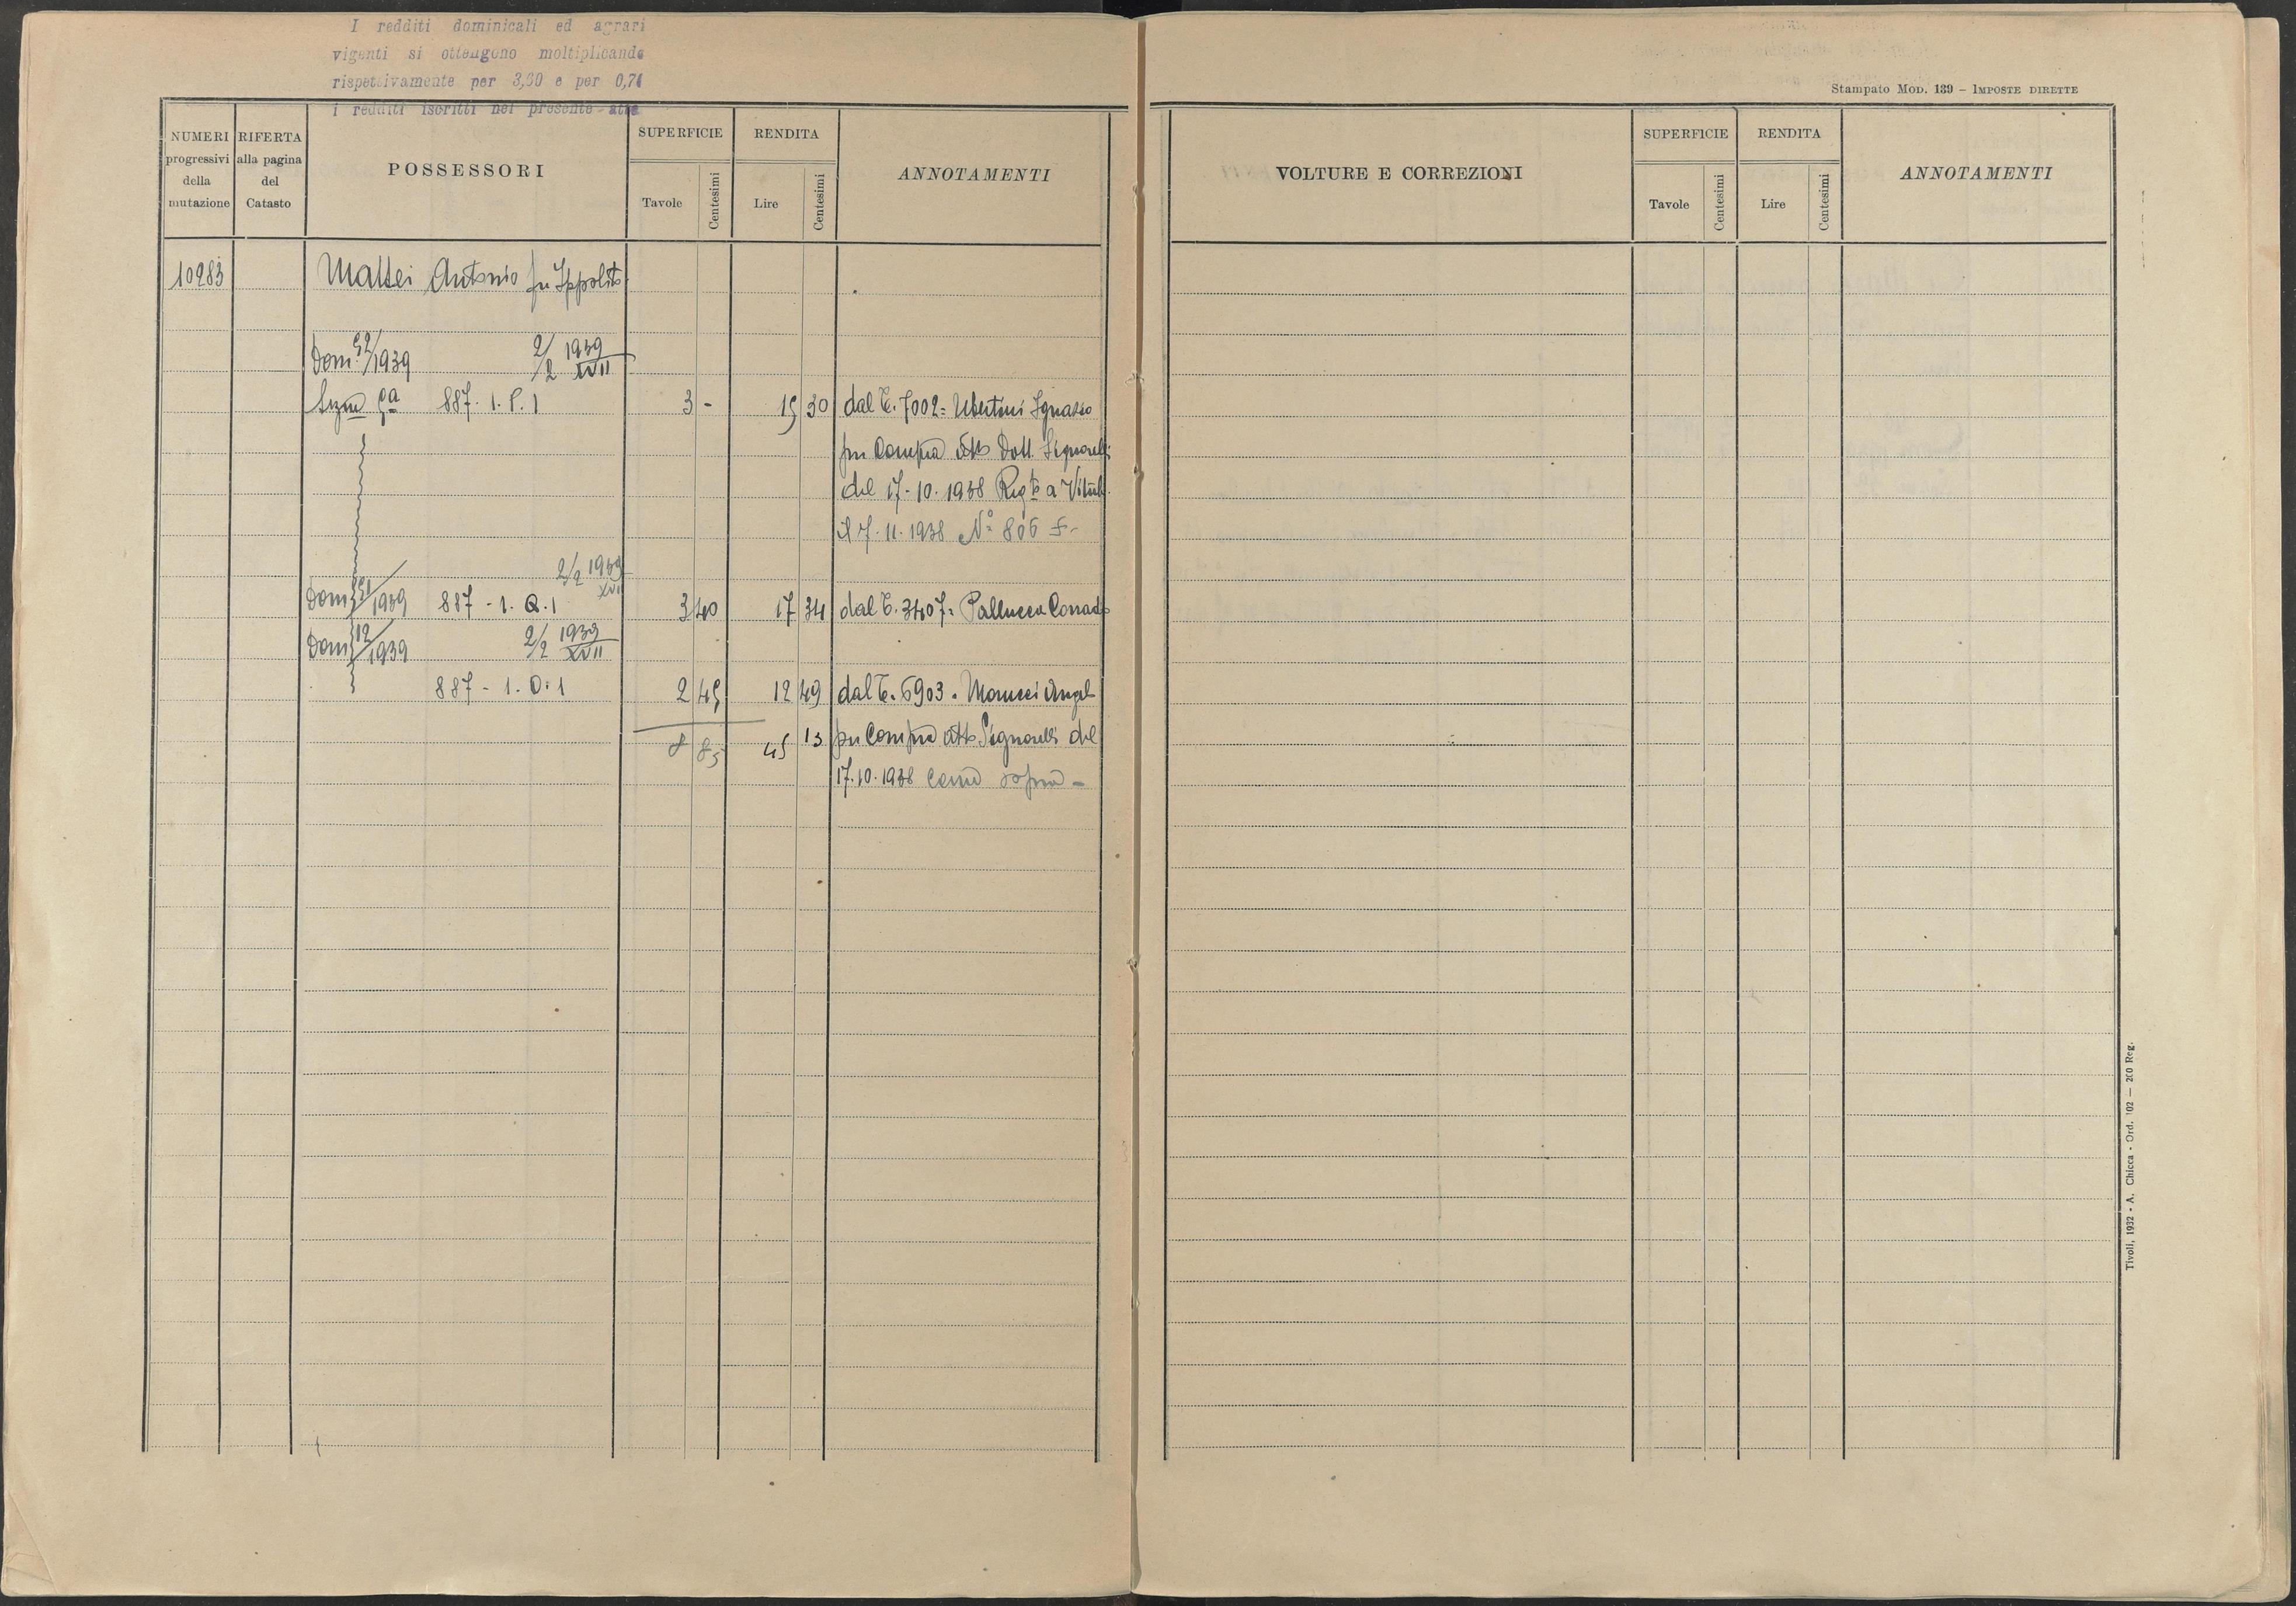 I redditi dominicali ed agrari
vigenti si ottengono moltiplicando
rispettivamente per 3,60 e per 0,74
i redditi iscritti nel presente atto
NUMERI progressivi della mutazione
RIFERTA alla pagina del Catasto
POSSESSORI
SUPERFICIE
Tavole
Centesimi
RENDITA
Lire
Centesimi
ANNOTAMENTI
10283 Mattei Antonio fu Ippolito
Dom. 52/1939 2/2 1939 XVII
Sezne 5a 887. 1. P. 1 3 - 15 30 dal C. 7002 = Ubertini Ignazio
per Compra atto Dott. Signorelli
del 17-10-1938 Regto a Viterb.
il 7-11-1938 No 806
2/2 1939 XVII
Dom 51/1939 887 - 1. Q. 1 3 40 17 34 dal C. 3407 = Pallucca Corrado
Dom 12/1939 2/2 1939 XVII
887 - 1. O. 1 2 45 12 49 dal C. 6903. Morucci Angel
8 85 45 13 per Compra atto Signorelli del
17.10.1938 come sopra -
Stampato MOD. 139 – IMPOSTE DIRETTE
VOLTURE E CORREZIONI
SUPERFICIE
Tavole
Centesimi
RENDITA
Lire
Centesimi
ANNOTAMENTI
Tivoli, 1932 - A. Chicca - Ord. 102 — 200 Reg.